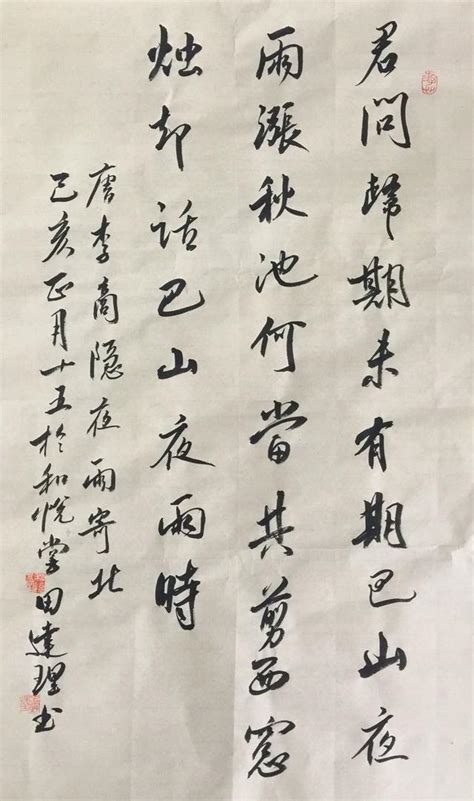 君問歸期未有期巴山夜
雨漲秋池何當共剪西窓
烛却話巴山夜雨時
唐李商隐夜雨寄北
己亥正月十五於和悅堂田達理书